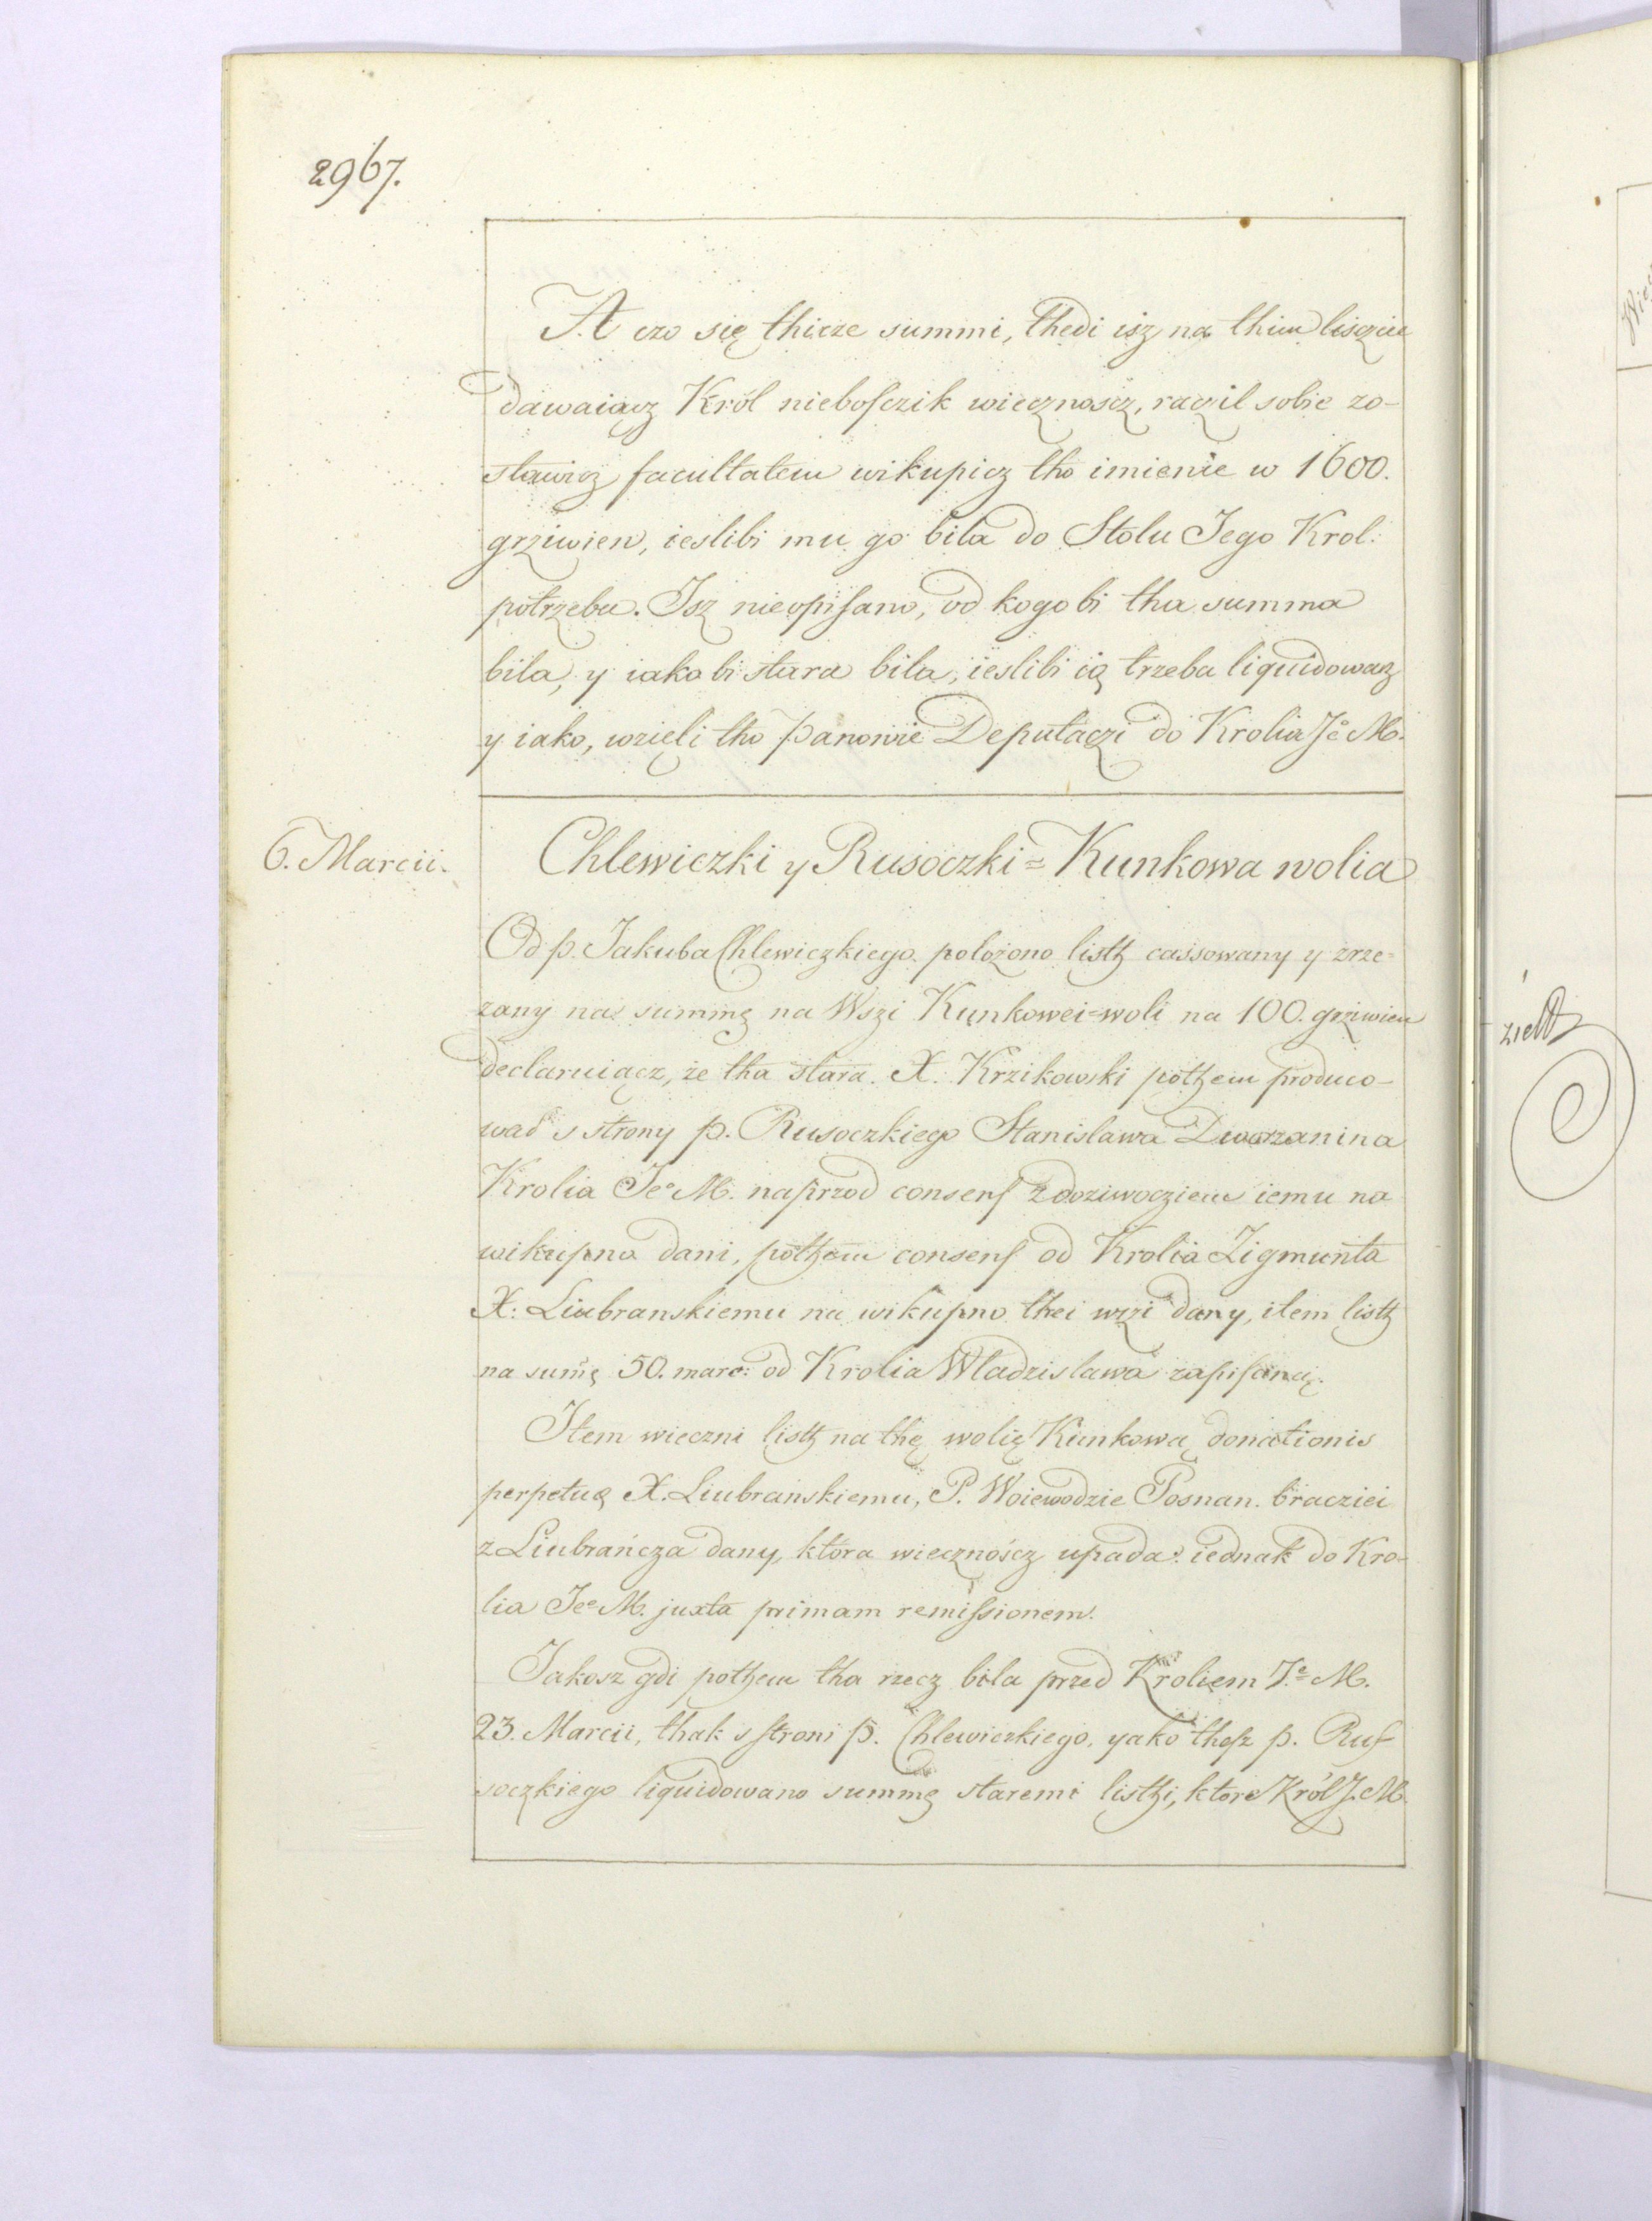 2967.
A czo się thicze summi, thedi isz na thim lisczie
dawaiącz Król nieboſczik wiecznoscz, raczil sobie zo-
stawicz facultatem wikupicz tho imienie w 1600.
grziwien, ieslibi mu go bila do Stolu Jego Krol.
potrzeba. Isz nieopiſano, od kogo bi tha summa
bila, y iako bi stara bila, ieslibi ią trzeba liquidowacz
y iako, wzięli tho Panowie Deputaczi do Krolia Je M.
6. Marcii.
Chlewiczki y Rusoczki = Kunkowa wolia
Od p. Jakuba Chlewiczkiego. polozono listh cassowany y zrze-
zany na summę na Wszi Kunkowei=woli na 100. grziwien
declaruiącz, że tha stara. X. Krzikowski pothem produco-
wał s strony p. Rusoczkiego Stanislawa Dworzanina
Krolia Jeo M. naprzod consenſ z doziwocziem iemu na
wikupno dani, pothem consenſ od Krolia Zigmunta
X: Liubranskiemu na wikupno thei wszi dany, item listh
na sum̃ę 50. marc: od Krolia Wladzislawa zapiſaną.
Item wieczni listh na thę wolię Kunkową donationis
perpetuę X. Liubranskiemu, P. Woiewodzie Posnan. bracziei
z Liubrańcza dany, która wiecznoścz upada: iednak do Kro-
lia Jeo M. juxta primam remiſsionem.
Jakosz gdi pothem tha rzecz bila przed Kroliem J.e M.
23. Marcii, thak s ſtroni p. Chlewiczkiego, yako theſz p. Ruſ-
soczkiego liquidowano summę staremi listhi, ktore Król J. M.